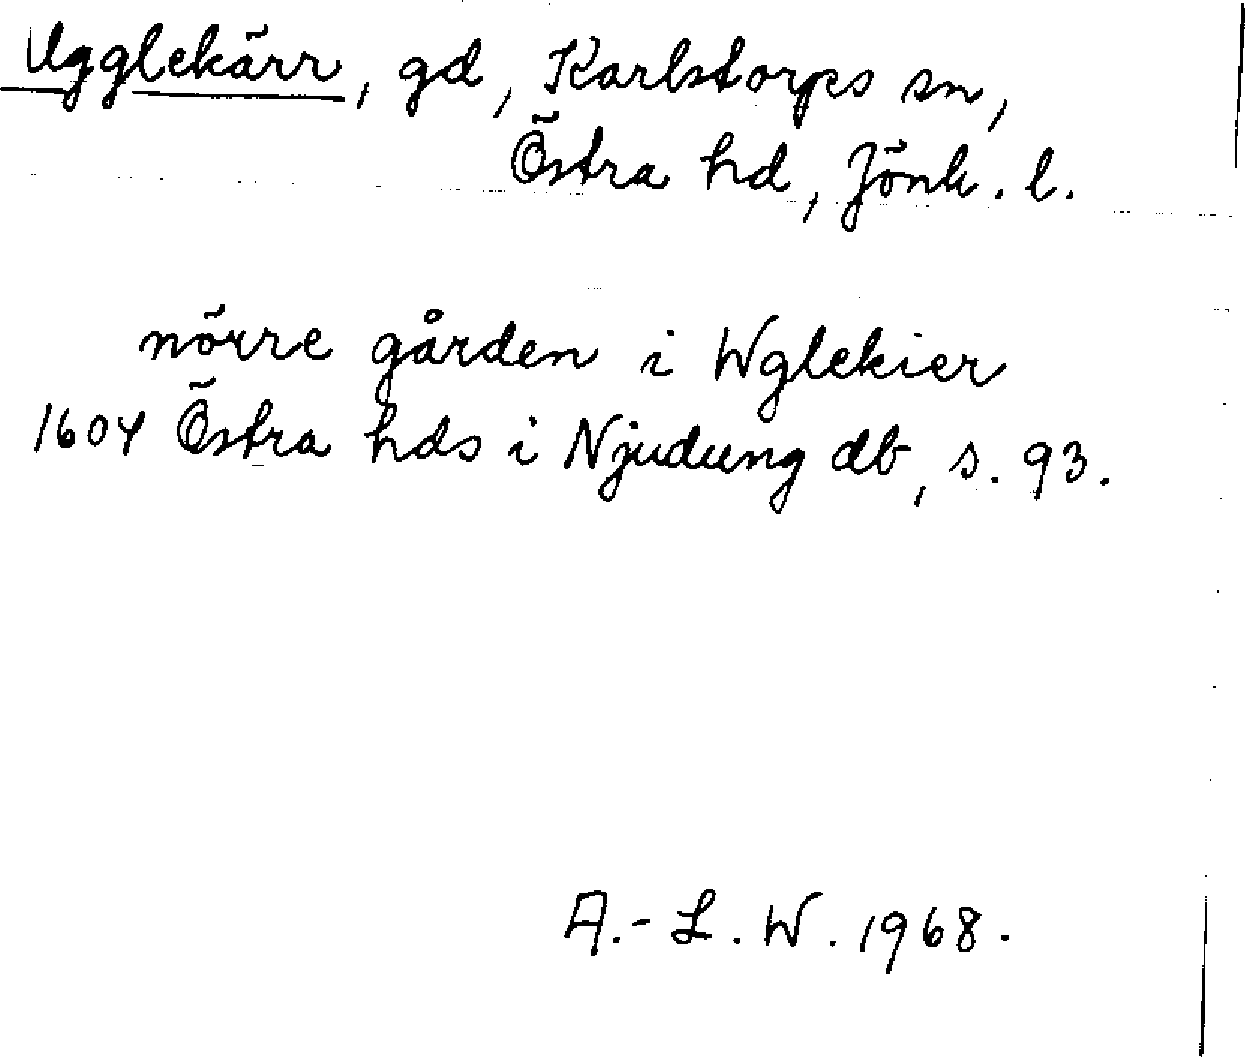 Ugglekärr, gd, Karlstorps sn,
Östra hd, Jönk. l.
nörre gården i Wglekier
1604 Östra hds i Njudung db, s. 93.
A.-L. W. 1968.